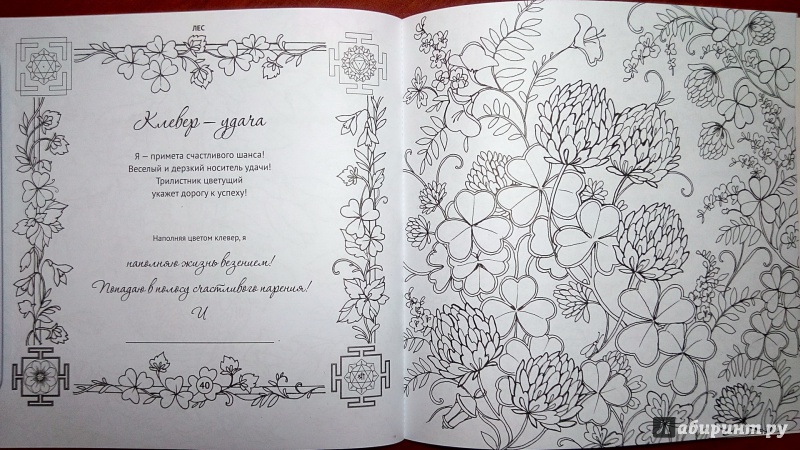 ЛЕС
Клевер – удача
Я – примета счастливого шанса!
Веселый и дерзкий носитель удачи!
Трилистник цветущий
укажет дорогу к успеху!
Наполняя цветом клевер, я
наполняю жизнь везением!
Попадаю в полосу счастливого парения!
И
40
Лабиринт.ру